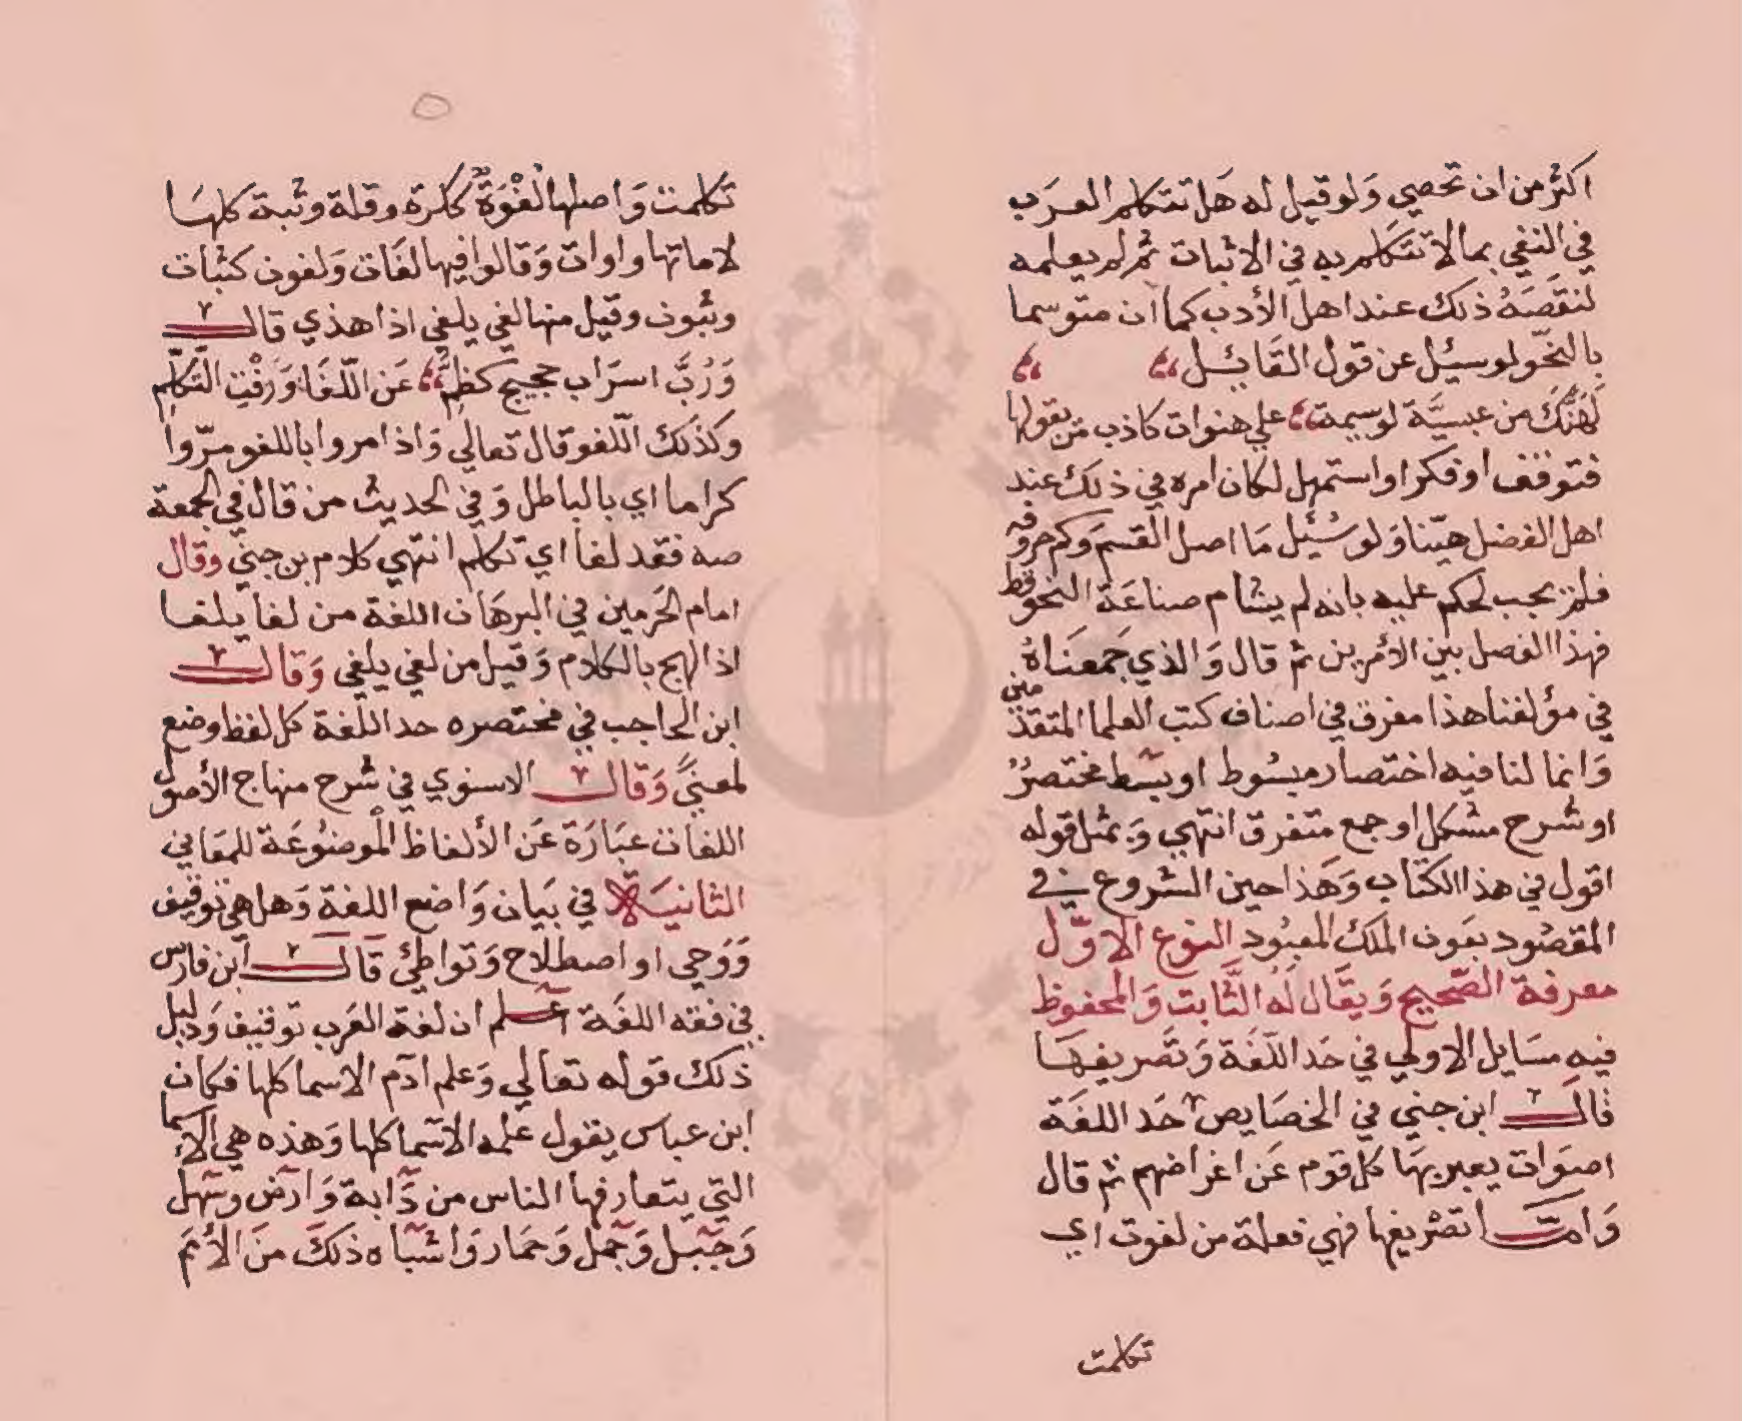 اكثر من ان تحصي وَلو قيل له هَل تتكلم العرَب
في النفي بما لا تتكلم به في الاثبات ثم لم يعلمه
لنقصَهُ ذلك عند اهل الأدب كما ان متوسما
بالنحو لو سيئل عن قول القائيل
لَهَنَّكَ من عبسيَّة لوسيمة علي هنوات كاذب من يقولها
فتوقف او فكر او استمهل لكان امره في ذلك عند
اهل الفضل هيّنا وَلو سُئيل مَا اصل القسم وَكم حروفه
فلم يجب لحكم عليه بانه لم يشام صناعَة النحو قط
فهذا الفصل بين الأمرين ثم قال وَالذي جَمعنَاهُ
في مؤلفنا هذا مفرق في اصناف كتب العلما المتقدمين
وَانما لنا فيه اختصار مبسُوط او بسَط مختصرُ
او شرح مشكل او جمع متفرق انتهي وَبمثل قوله
اقول في هذا الكتاب وَهَذا حين الشروع في
المقصُود بعَون الملك المعبُود النوع الاوّل
معرفة الصَّحيح وَيقَال لَه الثَّابت وَالمحفوظ
فيهِ مسَايل الاولي في حَد اللّغَة وَتَصريفهَا
قالَ ابن جني في الخصَايص حَد اللغَة
اصوَات يعبر بهَا كل قوم عَن اغراضهم ثم قال
وَامّا تصْريفها فهي فعلة من لغوت اي
تكلمت
تكلمت وَاصلها لُغْوَةٌ ككرة وقلة وثبة كلهَا
لاماتها واوات وَقالوا فيها لغَات وَلغون كثبات
وثبُون وقيل منها لغي يلغي اذا هذي قال
وَرُبَّ اسرَاب حجيج كظمٍ عَن اللّغَا وَرَفْثِ التكلّم
وكذَلك اللّغو قال تعالي وَاذا مروا باللغو مرّوا
كراما اي بالباطل وَفي الحديث من قال في الجمعة
صه فقد لغا اي تكلم انتهي كلام بن جني وقال
امام الحَرمين في البرهَان اللغة من لغا يلغا
اذا لهج بالكلام وَقيل من لغي يلغي وَقال
ابن الحاجب في مختصره حد اللّغة كل لفظ وضع
لمعنيً وَقال الاسنوي في شرح منهاج الأصول
اللغات عبَارَة عَن الألفاظ الْموضُوعَة للمعَاني
الثانيَة في بَيان وَاضع اللغة وَهل هي توقيف
وَوَحي او اصطلاح وَتواطئ قال ابن فارس
في فقه اللغَة اعلم ان لغة العَرب توقيف وَدليل
ذلك قوله تعالي وَعلم ادَم الاسما كلها فكان
ابن عباس يقول علمه الاسَما كلها وَهذه هي الاسما
التي يتعارفها الناس من دَابة وَارَض وسَهل
وَجَبل وَجَمل وَحمَار وَاشبَاه ذلكَ منَ الأمَم